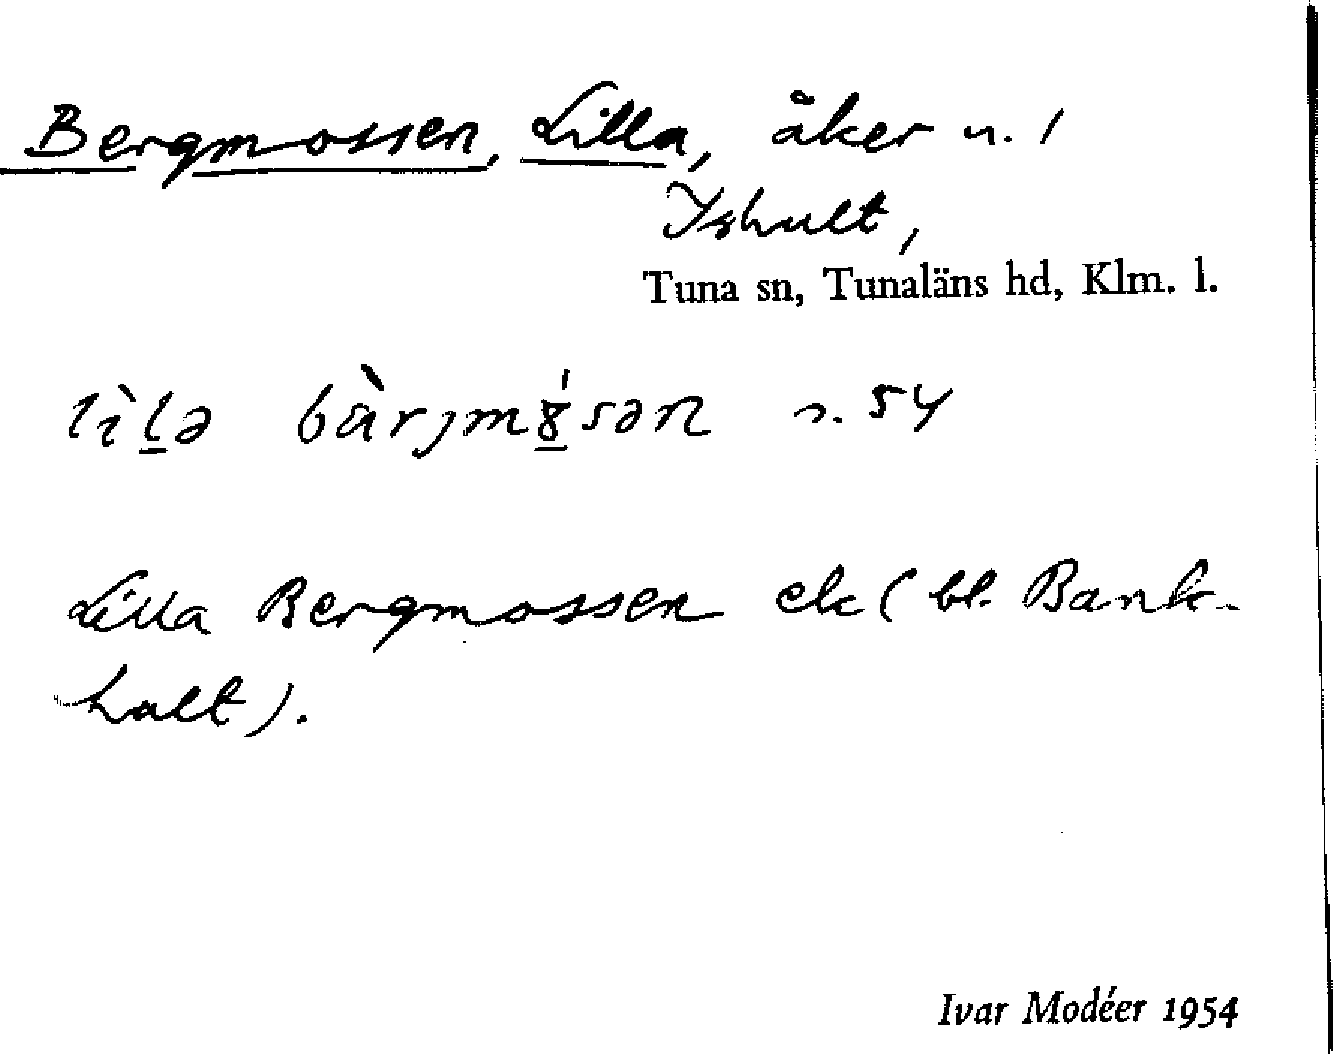 Bergmossen, Lilla, åker u. 1
Ishult,
Tuna sn, Tunaläns hd, Klm. l.
lìlə bàrjmɤ́sən s. 54
Lilla Bergmossen ek (bl. Bank-
hult).
Ivar Modéer 1954